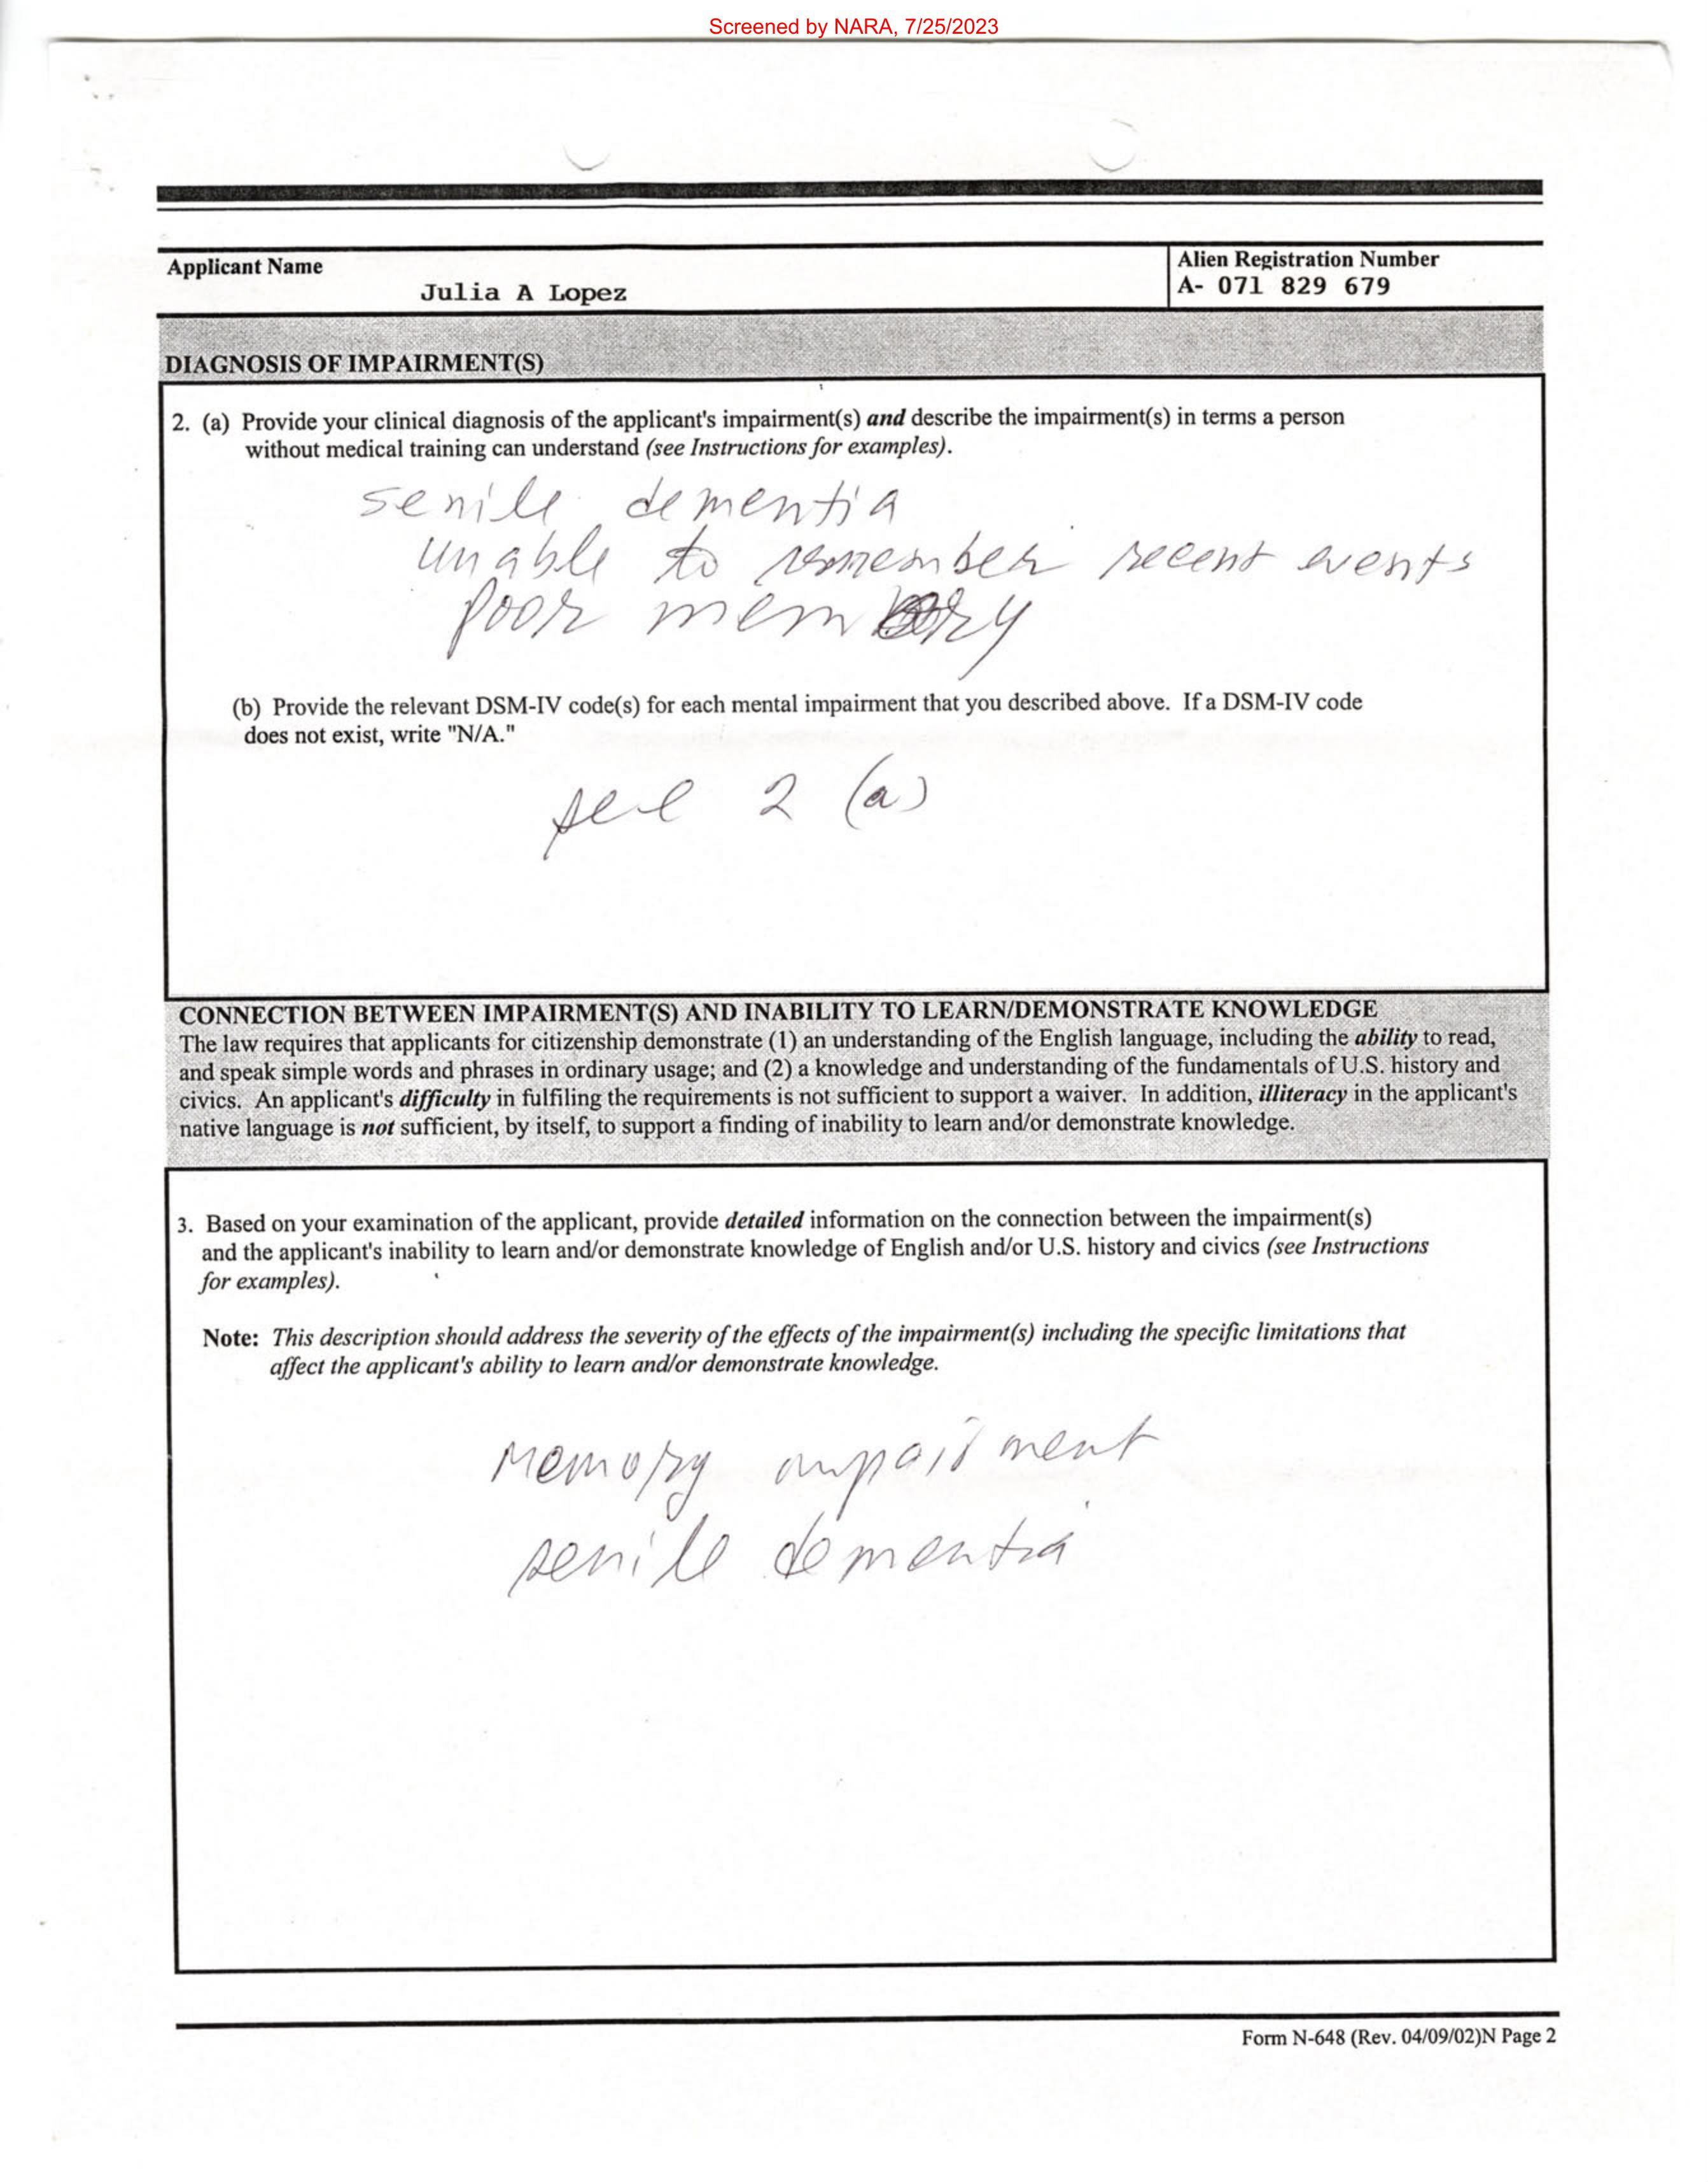 Screened by NARA, 7/25/2023
Applicant Name
Julia A Lopez
Alien Registration Number
A- 071 829 679
DIAGNOSIS OF IMPAIRMENT(S)
2. (a) Provide your clinical diagnosis of the applicant's impairment(s) and describe the impairment(s) in terms a person
without medical training can understand (see Instructions for examples).
senile dementia
unable to remember recent events
poor memory
(b) Provide the relevant DSM-IV code(s) for each mental impairment that you described above. If a DSM-IV code
does not exist, write "N/A."
see 2 (a)
CONNECTION BETWEEN IMPAIRMENT(S) AND INABILITY TO LEARN/DEMONSTRATE KNOWLEDGE
The law requires that applicants for citizenship demonstrate (1) an understanding of the English language, including the ability to read,
and speak simple words and phrases in ordinary usage; and (2) a knowledge and understanding of the fundamentals of U.S. history and
civics. An applicant's difficulty in fulfiling the requirements is not sufficient to support a waiver. In addition, illiteracy in the applicant's
native language is not sufficient, by itself, to support a finding of inability to learn and/or demonstrate knowledge.
3. Based on your examination of the applicant, provide detailed information on the connection between the impairment(s)
and the applicant's inability to learn and/or demonstrate knowledge of English and/or U.S. history and civics (see Instructions
for examples).
Note: This description should address the severity of the effects of the impairment(s) including the specific limitations that
affect the applicant's ability to learn and/or demonstrate knowledge.
Memory impairment
senile dementia
Form N-648 (Rev. 04/09/02)N Page 2